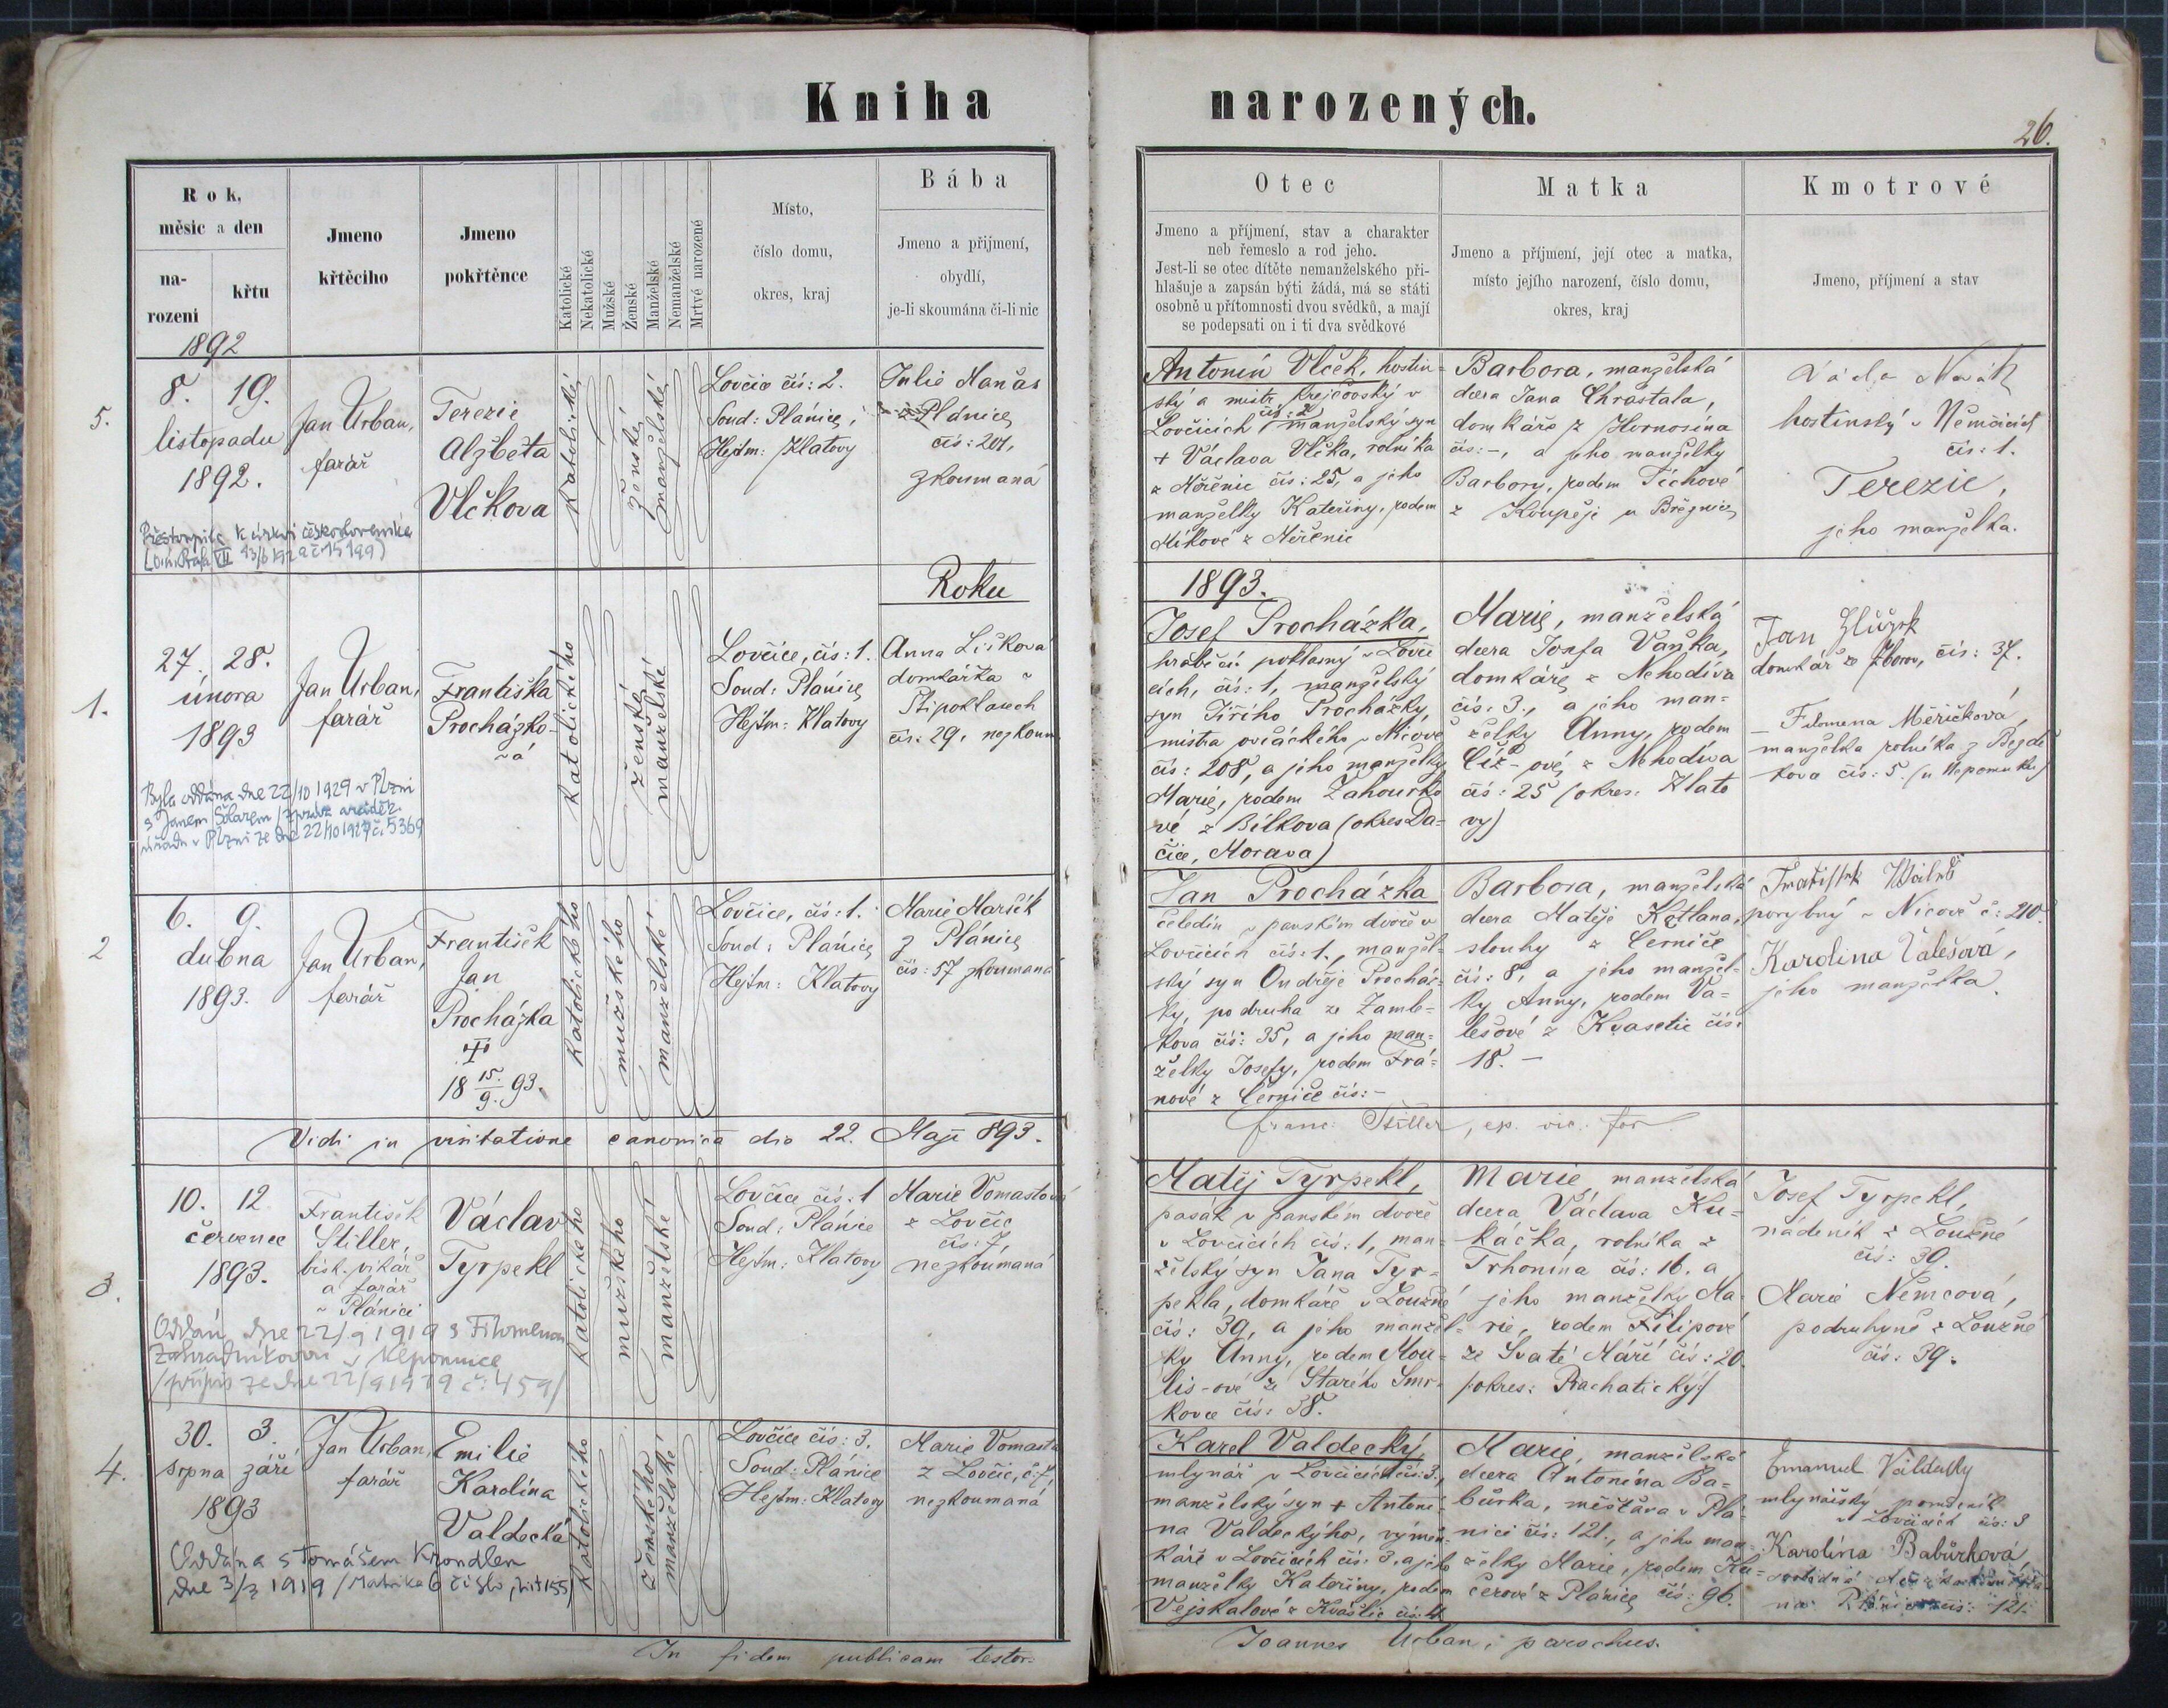 Kniha narozených.
26.
Rok,
měsíc a den
na-
rození
křtu
Jmeno
křtěcího
Jmeno
pokřtěnce
Katolické
Nekatolické
Mužské
Ženské
Manželské
Nemanželské
Mrtvě narozené
Místo,
číslo domu,
okres, kraj
Bába
Jmeno a přijmení,
obydlí,
je-li skoumána či-li nic
Otec
Jmeno a příjmení, stav a charakter
neb řemeslo a rod jeho.
Jest-li se otec dítěte nemanželského při-
hlašuje a zapsán býti žádá, má se státi
osobně u přítomnosti dvou svědků, a mají
se podepsati on i ti dva svědkové
Matka
Jmeno a příjmení, její otec a matka,
místo jejího narození, číslo domu,
okres, kraj
Kmotrové
Jmeno, příjmení a stav
1892
5.
8. 19.
listopadu
1892.
Jan Urban,
farář
Terezie
Alžběta
Vlčkova
katolické
ženské
manželské
Lovčice čís: 2.
Soud: Plánice,
Hejtm: Klatovy
Julie Maňas
z Plánice
čís: 201,
zkoumaná
Antonín Vlček, hostin-
ský a mistr krejčovský v
Lovčicích čís: 2, manželský syn
+ Václava Vlčka, rolníka
z Měčenic čís: 25, a jeho
manželky Kateřiny, rodem
Míkové z Měčenic
Barbora, manželská
dcera Jana Chrastala,
domkáře z Hornosína
čís: -, a jeho manželky
Barbory, rodem Tíchové
z Koupěje u Březnice
Novák
hostinský v Němčicích
čís: 1.
Terezie,
jeho manželka.
Přestoupila k církvi československé
Roku 1893.
1.
27. 28.
února
1893
Jan Urban,
farář
Františka
Procházko-
vá
katolického
ženské
manželské
Lovčice, čís: 1.
Soud: Plánice
Hejtm: Klatovy
Anna Lišková
domkářka v
Štipoklasech
čís: 29, nezkoum
Josef Procházka,
hraběcí poklasný v Lovči
cích, čís: 1, manželský
syn Jiřího Procházky,
mistra ovčáckého v Nicově
čís: 208, a jeho manželky
Marie, rodem Zahourko
vé z Bílkova (okres Da-
čice, Morava)
Marie, manželská
dcera Josefa Vaňka,
domkáře z Nehodíva
čís: 3., a jeho man-
želky Anny, rodem
Číž-ové, z Nehodíva
čís: 25 (okres. Klato
vy)
Jan
domkář ze Zborov, čís: 37.
Filomena Měřičková,
manželka rolníka z Bezdě
kova čís: 5. (u Nepomuku)
Byla oddána dne 22/10 1929 v Plzni
s Janem Šolarem
úřadu v Plzni ze dne 22/10 1929 č. 5369
2
6. 9.
dubna
1893.
Jan Urban,
farář
František
Jan
Procházka
†
18 15./9. 93.
katolického
mužského
manželské
Lovčice, čís: 1.
Soud: Plánice
Hejtm: Klatovy
Marie Maršík
z Plánice
čís: 57 zkoumaná
Jan Procházka
čeledín v panském dvoře v
Lovčicích čís: 1., manžel-
ský syn Ondřeje Procház-
ky, podruha ze Zamle-
kova čís: 35, a jeho man-
želky Josefy, rodem Frá-
nové z Černíče čís: -
Barbora, manželská
dcera Matěje Kotlana,
slouhy z Černíče
čís: 8, a jeho manžel-
ky Anny, rodem Va-
lešové z Kvasetic čís:
18. -
František
porybný v Nicově č: 210.
Karolina Valešová,
jeho manželka.
Vidi in visitatione canonica die 22. Maji 893.
Franc. Stiller, ep. vic. for.
3.
10. 12.
července
1893.
František
Stiller,
bisk. vikář
a farář
v Plánici
Václav
Tyrpekl
katolického
mužského
manželské
Lovčice čís: 1
Soud: Plánice
Hejtm: Klatovy
Marie Vomastová
z Lovčic
čís: 7,
nezkoumaná
Matěj Tyrpekl,
pasák v panském dvoře
v Lovčicích čís: 1, man-
želský syn Jana Tyr-
pekla, domkáře v Loužné
čís: 39, a jeho manžel-
ky Anny, rodem Mou-
lis-ové ze Starého Smr-
kovce čís: 38.
Marie, manželská
dcera Václava Ku-
káčka, rolníka z
Trhonína čís: 16. a
jeho manželky Ma-
rie, rodem Filipové
ze Svaté Máří čís: 20
/:okres: Prachatický:/
Josef Tyrpekl,
nádeník z Loužné
čís: 39.
Marie Němcová,
podruhyně z Loužné
čís: 39.
Oddán dne 22/9 1919 s Filomenou
Zahradníkovou v Nepomuce
/přípis ze dne 22/9 1919 č: 459/
4.
30. 3.
srpna září
1893
Jan Urban,
farář
Emilie
Karolína
Valdecká
katolického
ženského
manželské
Lovčice čís: 3.
Soud: Plánice
Hejtm: Klatovy
Marie Vomasta
z Lovčic, č: 7,
nezkoumaná
Karel Valdecký,
mlynář v Lovčicích čís: 3.,
manželský syn + Antoní-
na Valdeckýho, výměn-
káře v Lovčicích čís: 3, a jeho
manželky Kateřiny, rodem
Vejskalové z Kvášlic čís: 4
Marie, manželská
dcera Antonína Ba-
bůrka, měšťana v Plá-
nici čís: 121., a jeho man-
želky Marie, rodem Ku-
čerové z Plánice čís: 96.
Emanuel Valdecký
mlynářský pomocník
v Lovčicích čís: 3
Karolína Babůrková,
čís: 121.
Oddána s Tomášem Krondlem
dne 3/3 1919 /Matrika 6 číslo list 155/
In fidem publicam testor:
Joannes Urban, parochus.